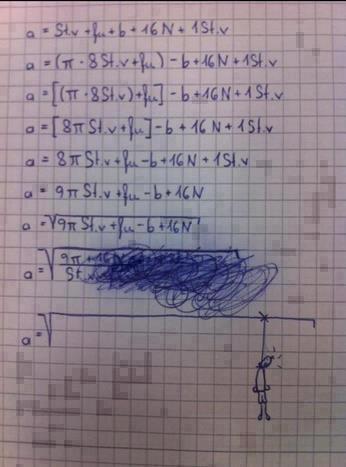 a = St.v + fu + b + 16N + 1St.v
a = (π · 8St.v + fu) - b + 16N + 1St.v
a = [(π · 8St.v) + fu] - b + 16N + 1St.v
a = [8π St.v + fu] - b + 16N + 1St.v
a = 8π St.v + fu - b + 16N + 1St.v
a = 9π St.v + fu - b + 16N
a = √9π St.v + fu - b + 16N
a = √9π + 16N
St.v
a = √